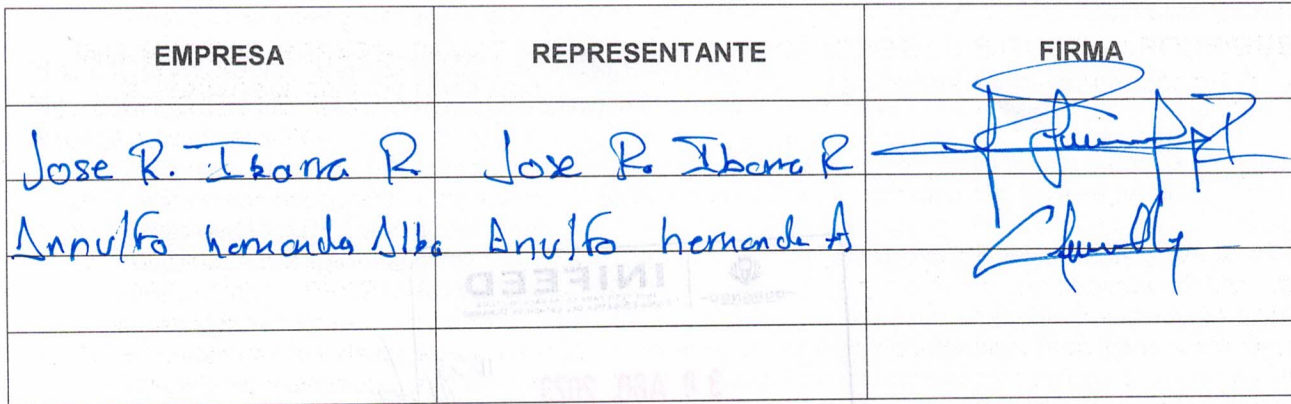 EMPRESA REPRESENTANTE FIRMA
Jose R. Ibarra R. Jose R. Ibarra R
Arnulfo hernandez Alba Arnulfo hernande A
INIFEED